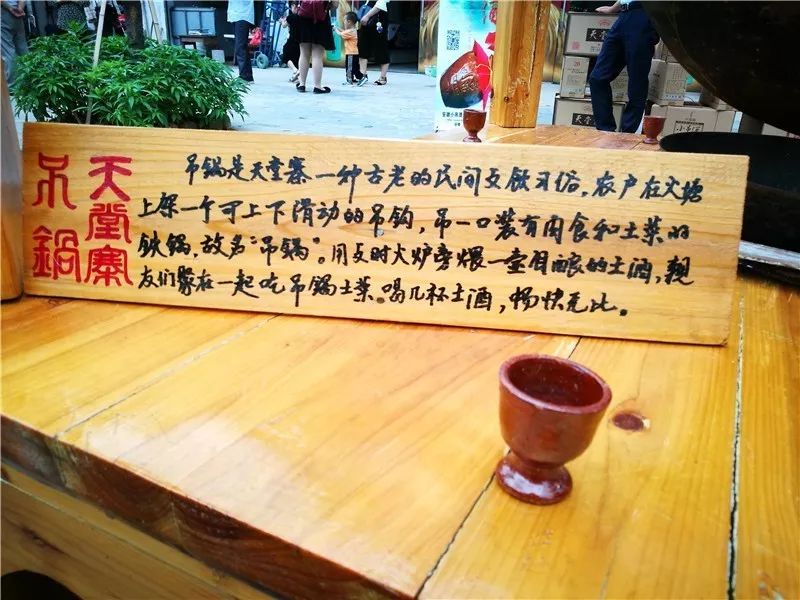 天堂寨
吊鍋
吊锅是天堂寨一种古老的民间歺饮习俗,农户在火塘
上架一个可上下滑动的吊钩,吊一口装有肉食和土菜的
铁锅,故名“吊锅”。用歺时火炉旁煨一壶自酿的土酒,親
友们聚在一起吃吊锅土菜喝几杯土酒,畅快无比。